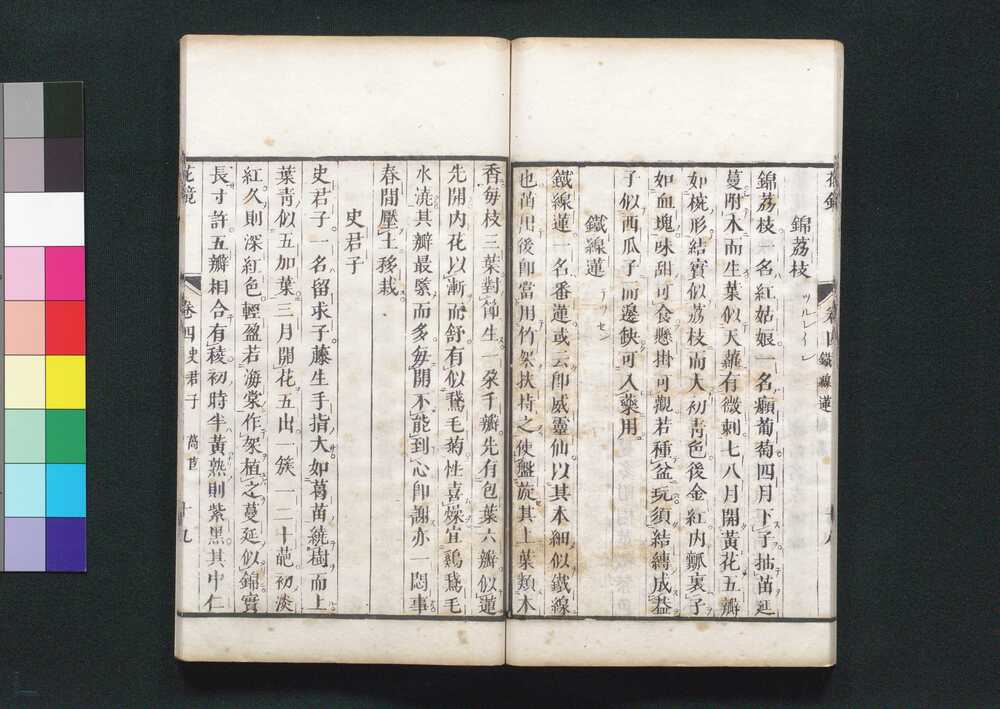 錦茘枝 ツルレイシ
錦茘枝一名紅姑娘一名癩葡萄四月下子抽苗延
蔓附木而生葉似天蘿有微刺七八月開黃花五瓣
如椀形結實似茘枝而大初青色後金紅内瓤裹子
如血塊味甜可食懸掛可觀若種盆玩須結縛成蓋
子似西瓜子而邊缺可入藥用
鐵線蓮 テツセン
鐵線蓮一名番蓮或云即威靈仙以其本細似鐵線
也苗出後即當用竹架扶持之使盤旋其上葉類木
香每枝三葉對節生一朶千瓣先有包葉六瓣似蓮
先開内花以漸而舒有似鵞毛菊性喜燥宜鷄鵞毛
水澆其瓣最緊而多每開不能到心即謝亦一悶事
春間壓土移栽
史君子
史君子一名留求子藤生手指大如葛苗繞樹而上
葉青似五加葉三月開花五出一簇一二十葩初淡
紅久則深紅色輕盈若海棠作架植之蔓延似錦實
長寸許五瓣相合有稜初時半黃熟則紫黑其中仁
花鏡 卷四 史君子 十九